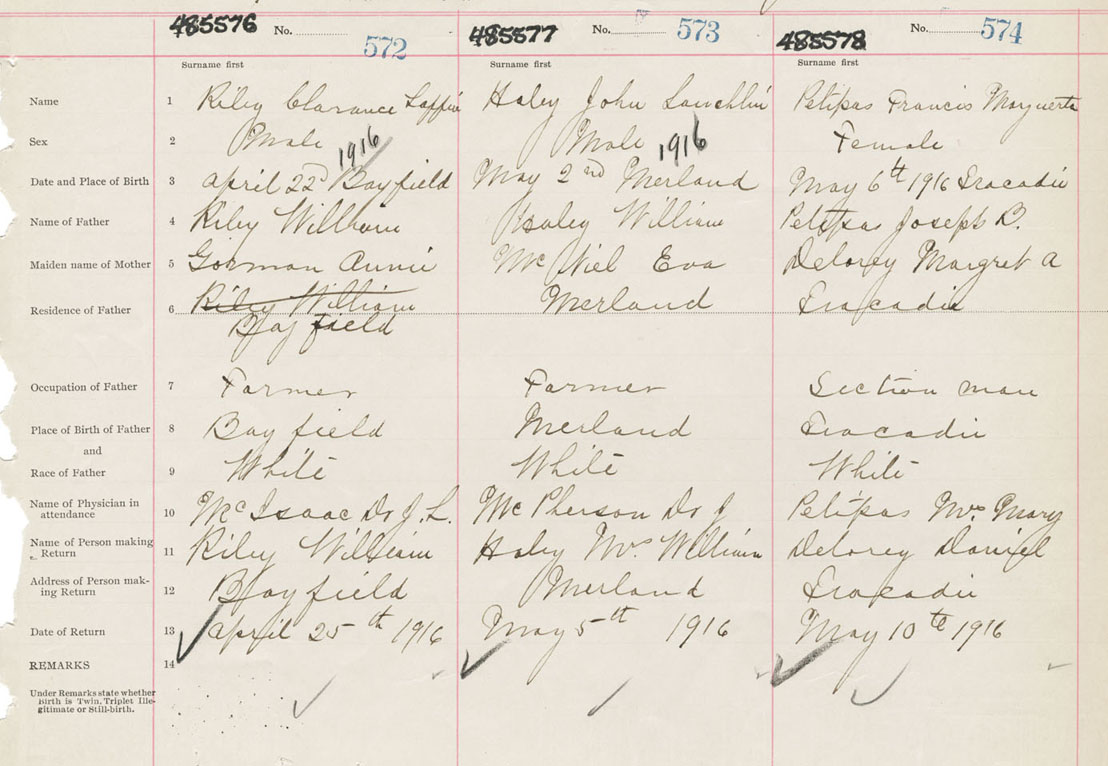 485576 No. 572 485577 No. 573 485578 No. 574
Surname first Surname first Surname first
Name 1 Riley Clarance Laffin Haley John Lauchlin Petipas Francis Marguerta
Sex 2 Male Male Female
1916 1916
Date and Place of Birth 3 April 22d Bayfield May 2nd Merland May 6th 1916 Tracadie
Name of Father 4 Riley William Haley William Petipas Joseph B.
Maiden name of Mother 5 Gorman Annie McNiel Eva Delorey Margret A
Residence of Father 6 Riley William Merland Tracadie
Bayfield
Occupation of Father 7 Farmer Farmer Section man
Place of Birth of Father 8 Bayfield Merland Tracadie
and
Race of Father 9 White White White
Name of Physician in
attendance 10 McIsaac Dr J. L. McPherson Dr J Petipas Mrs Mary
Name of Person making
Return 11 Riley William Haley Mrs William Delorey Daniel
Address of Person mak-
ing Return 12 Bayfield Merland Tracadie
Date of Return 13 April 25th 1916 May 5th 1916 May 10th 1916
REMARKS 14
Under Remarks state whether
Birth is Twin, Triplet Ille-
gitimate or Still-birth.